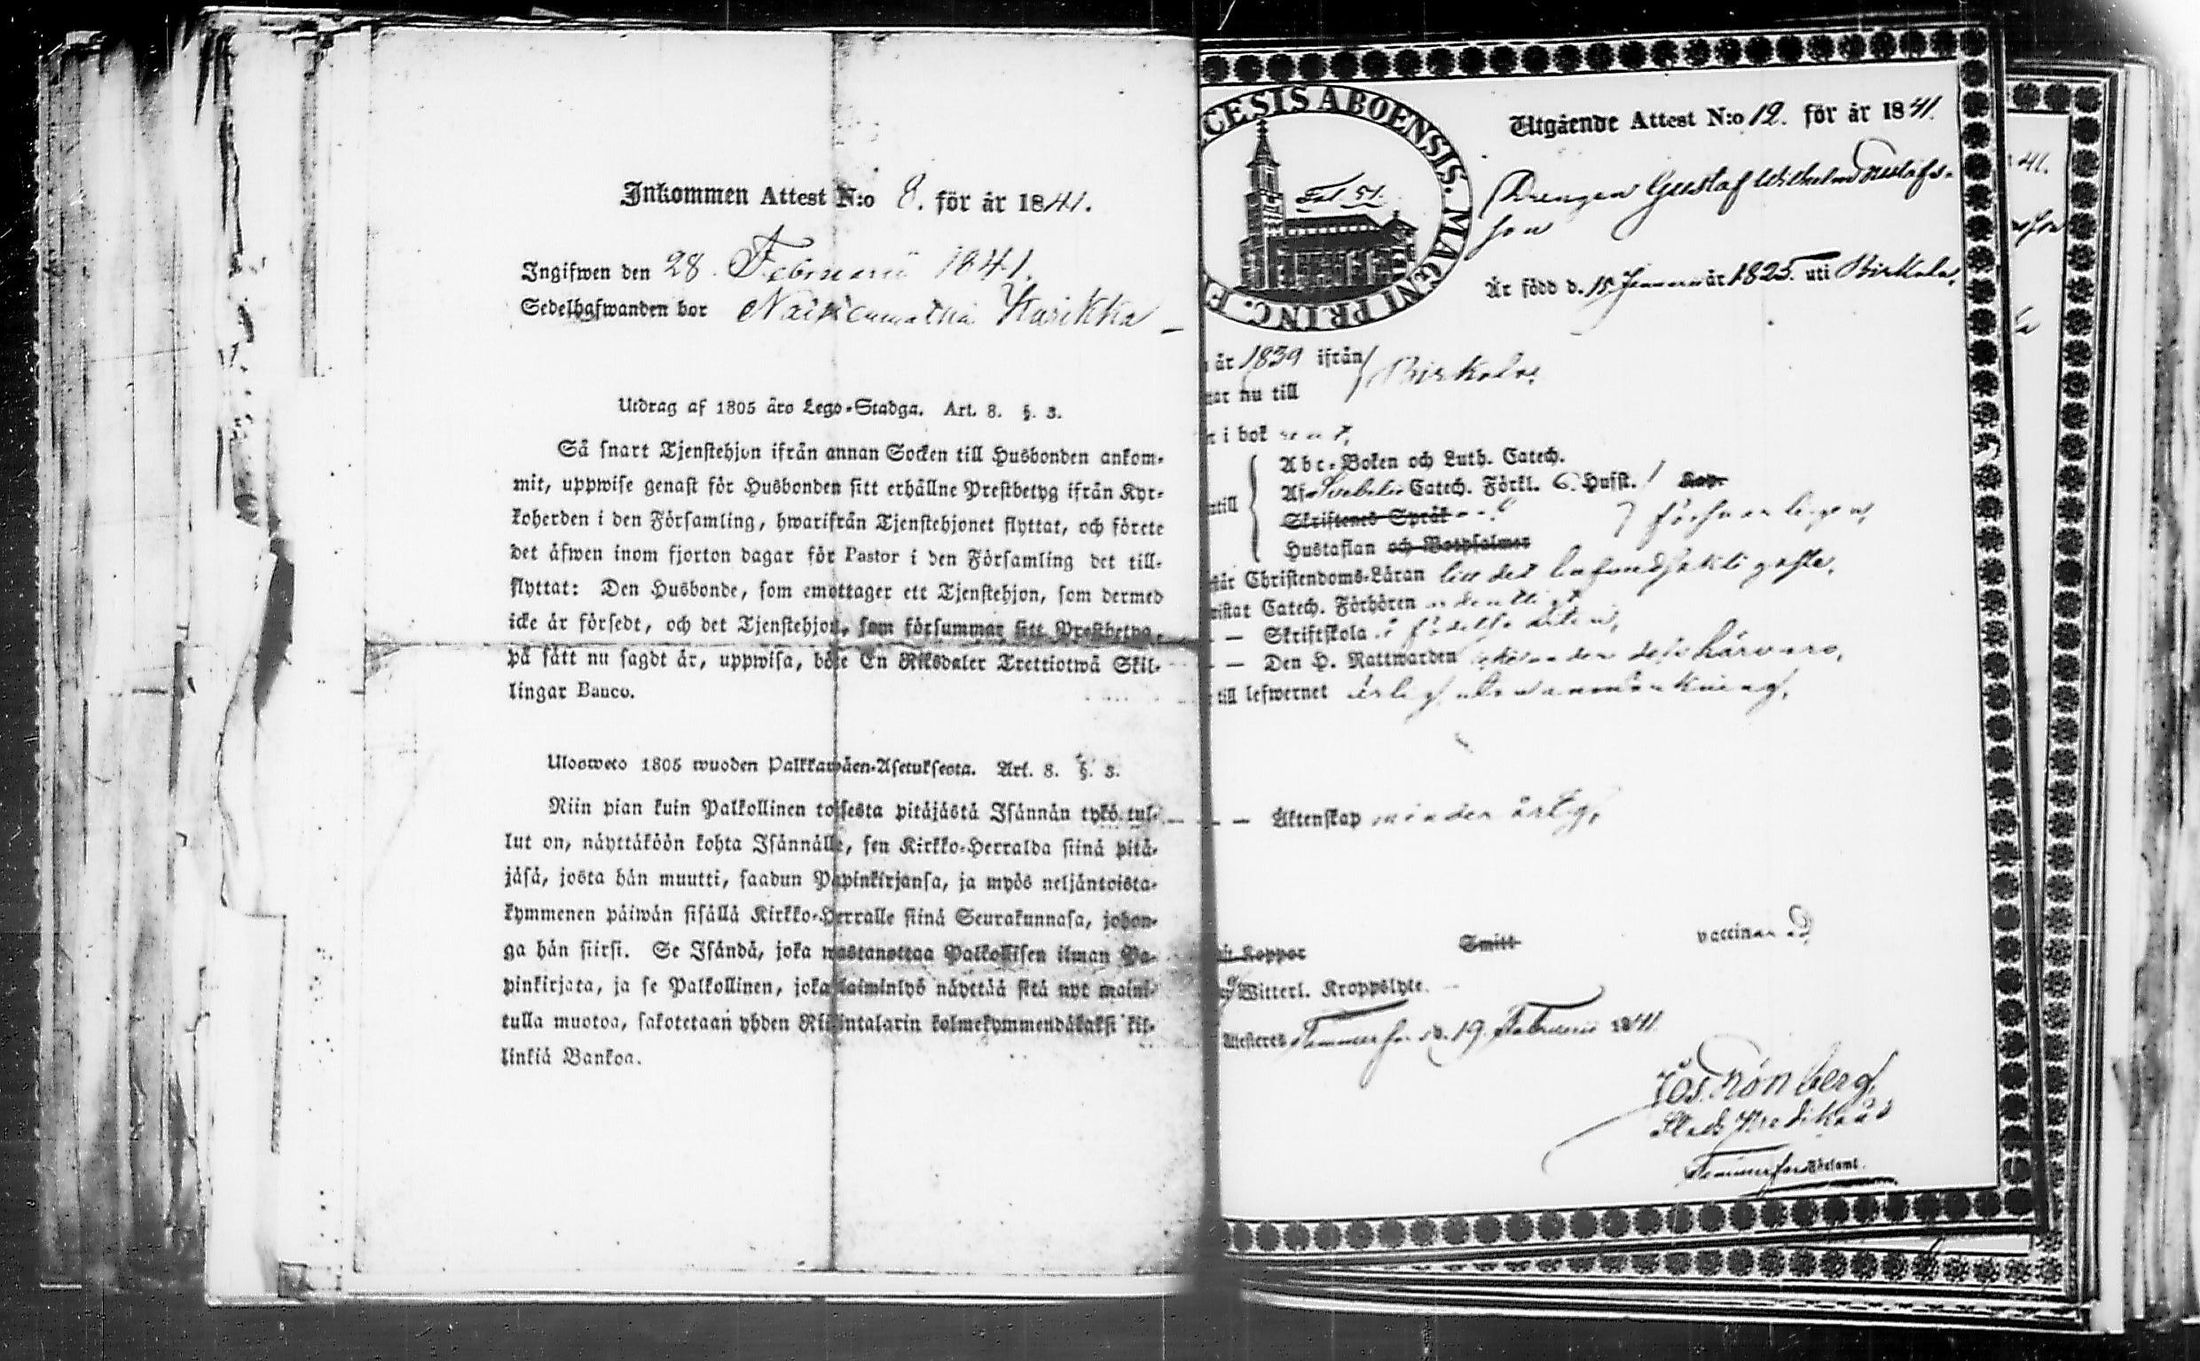 Inkommen Attest N:o 8. för år 1841.
Ingifwen den 28. Februarii 1841.
Sedelhafwanden bor Karikka
Utdrag af 1805 års Lego-Stadga. Art. 8. §. 3.
Så snart Tjenstehjon ifrån annan Socken till Husbonden ankom-
mit, uppwise genast för Husbonden sitt erhållne Prestbetyg ifrån Kyr-
koherden i den Församling, hwarifrån Tjenstehjonet flyttat, och förete
det äfwen inom fjorton dagar för Pastor i den Församling det till-
flyttat: Den Husbonde, som emottager ett Tjenstehjon, som dermed
icke är försedt, och det Tjenstehjon, som försummar sitt Prestbetyg,
på sätt nu sagdt är, uppwisa, böte En Riksdaler Trettiotwå Skil-
lingar Banco.
Ulosweto 1805 wuoden Palkkawäen-Asetuksesta. Art. 8. §. 3.
Niin pian kuin Palkollinen toisesta pitäjästä Isännän tykö tul-
lut on, näyttäköön kohta Isännälle, sen Kirkko-Herralda siinä pitä-
jäsä, josta hän muutti, saadun Papinkirjansa, ja myös neljäntoista-
kymmenen päiwän sisällä Kirkko-Herralle siinä Seurakunnasa, johon-
ga hän siirsi. Se Isändä, joka wastanottaa Palkollisen ilman Pa-
pinkirjata, ja se Palkollinen, joka laiminlyö näyttää sitä nyt maini-
tulla muotoa, sakotetaan yhden Riksintalarin kolmekymmendäkaksi kil-
linkiä Bankoa.
CESIS ABOENSIS. MAGNI PRINC. F
Fol 51.
Utgående Attest N:o 12. för år 1841.
Drengen Gustaf Wilhelm Gustafs-
son
Är född d. 15 Januarii år 1825. uti Birkala,
år 1839 ifrån
nu till Birkala,
i bok rent,
Abc-Boken och Luth. Catech.
Af Svebelii Catech. Förkl. 6. Hufst. Kap.
Skriftenes Språk
Hustaflan och Botpsalmer
försvarligen,
Christendoms-Läran till det
Catech. Förhören ordentligt
— Skriftskola i
— Den H. Nattwarden härvaro,
till lefwernet ärlig utan anmärkning,
— — Äktenskap minderårig,
Koppor Smitt vaccinerad
Witterl. Kroppslyte.
Attesteres Tammerfors d. 19 Februarii 1841
Jos. Grönberg,
Stads Predikant
Tammerfors Församl.